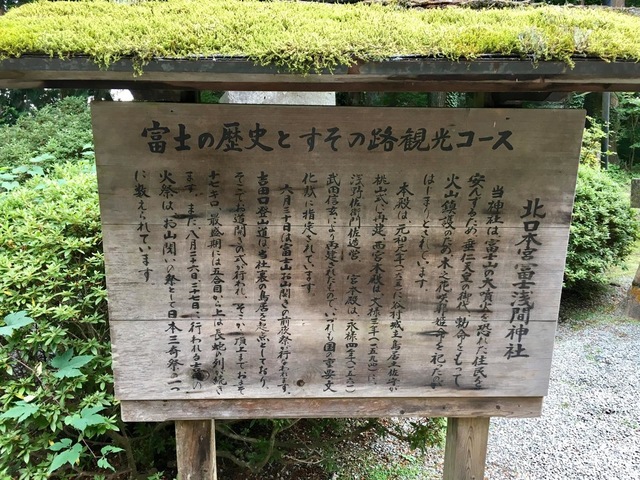 富士の歴史とすその路観光コース
北口本宮富士浅間神社
当神社は、富士山の大噴火を恐れた住民を
安んずるため、垂仁天皇の御代、勅命をもって
火山鎮護のため木花開耶姫命を祀ったのが
はじまりとされています。
本殿は、元和元年に谷村城主鳥居土佐守が
桃山式に再建、西宮本殿は、文禄三年(一五九四)に、
浅野左衛門佐造営、東宮本殿は、永禄四年
武田信玄により再建されたもので、いずれも国の重要文
化財に指定されています。
六月三十日は富士山お山開きの前夜祭が行われます。
吉田口登山道は、当社裏の鳥居を起点としており、
そこでお道開きの式が行われ、そこから頂上までおよそ
十七キロ、最終期には五合目から上は
ます。また、八月二十六日、二十七日に行われる吉田の
火祭は、お山閉いの祭として日本三奇祭の一つ
に数えられています。